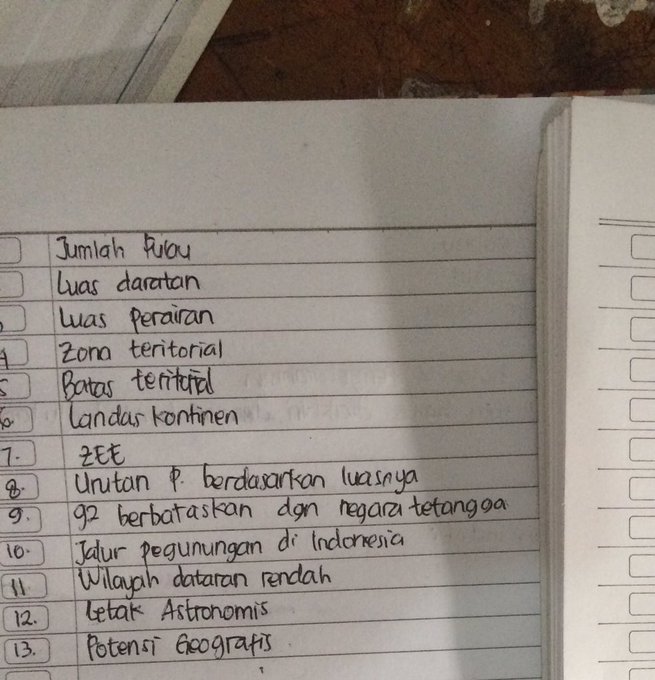 Jumlah Pulau
Luas daratan
Luas Perairan
4 Zona teritorial
5 Batas teritorial
6. Landas kontinen
7. ZEE
8. Urutan P. berdasarkan luasnya
9. 92 berbataskan dgn negara tetangga
10. Jalur pegunungan di Indonesia
11 Wilayah dataran rendah
12. Letak Astronomis
13. Potensi Geografis